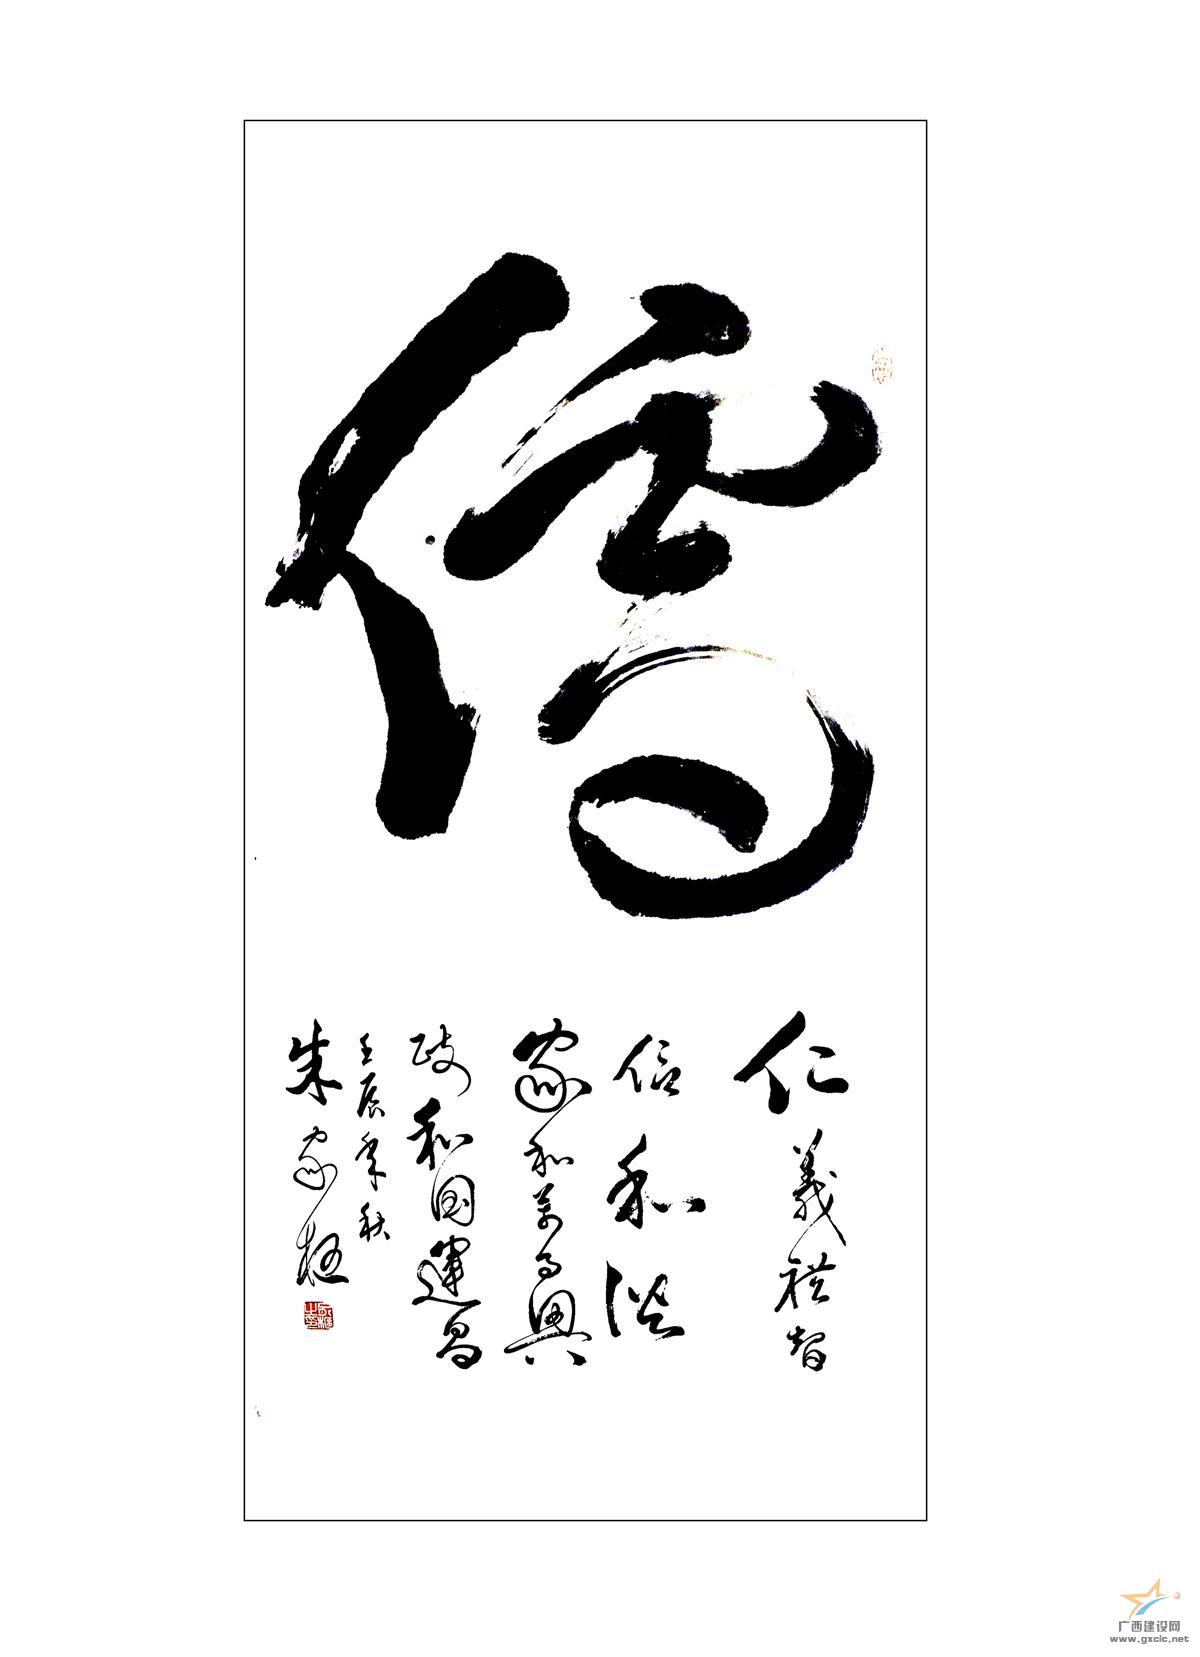 儒
仁義禮智
信和諧
家和萬事興
政和國運昌
壬辰年秋
朱家
广西建设网
www.gxcic.net